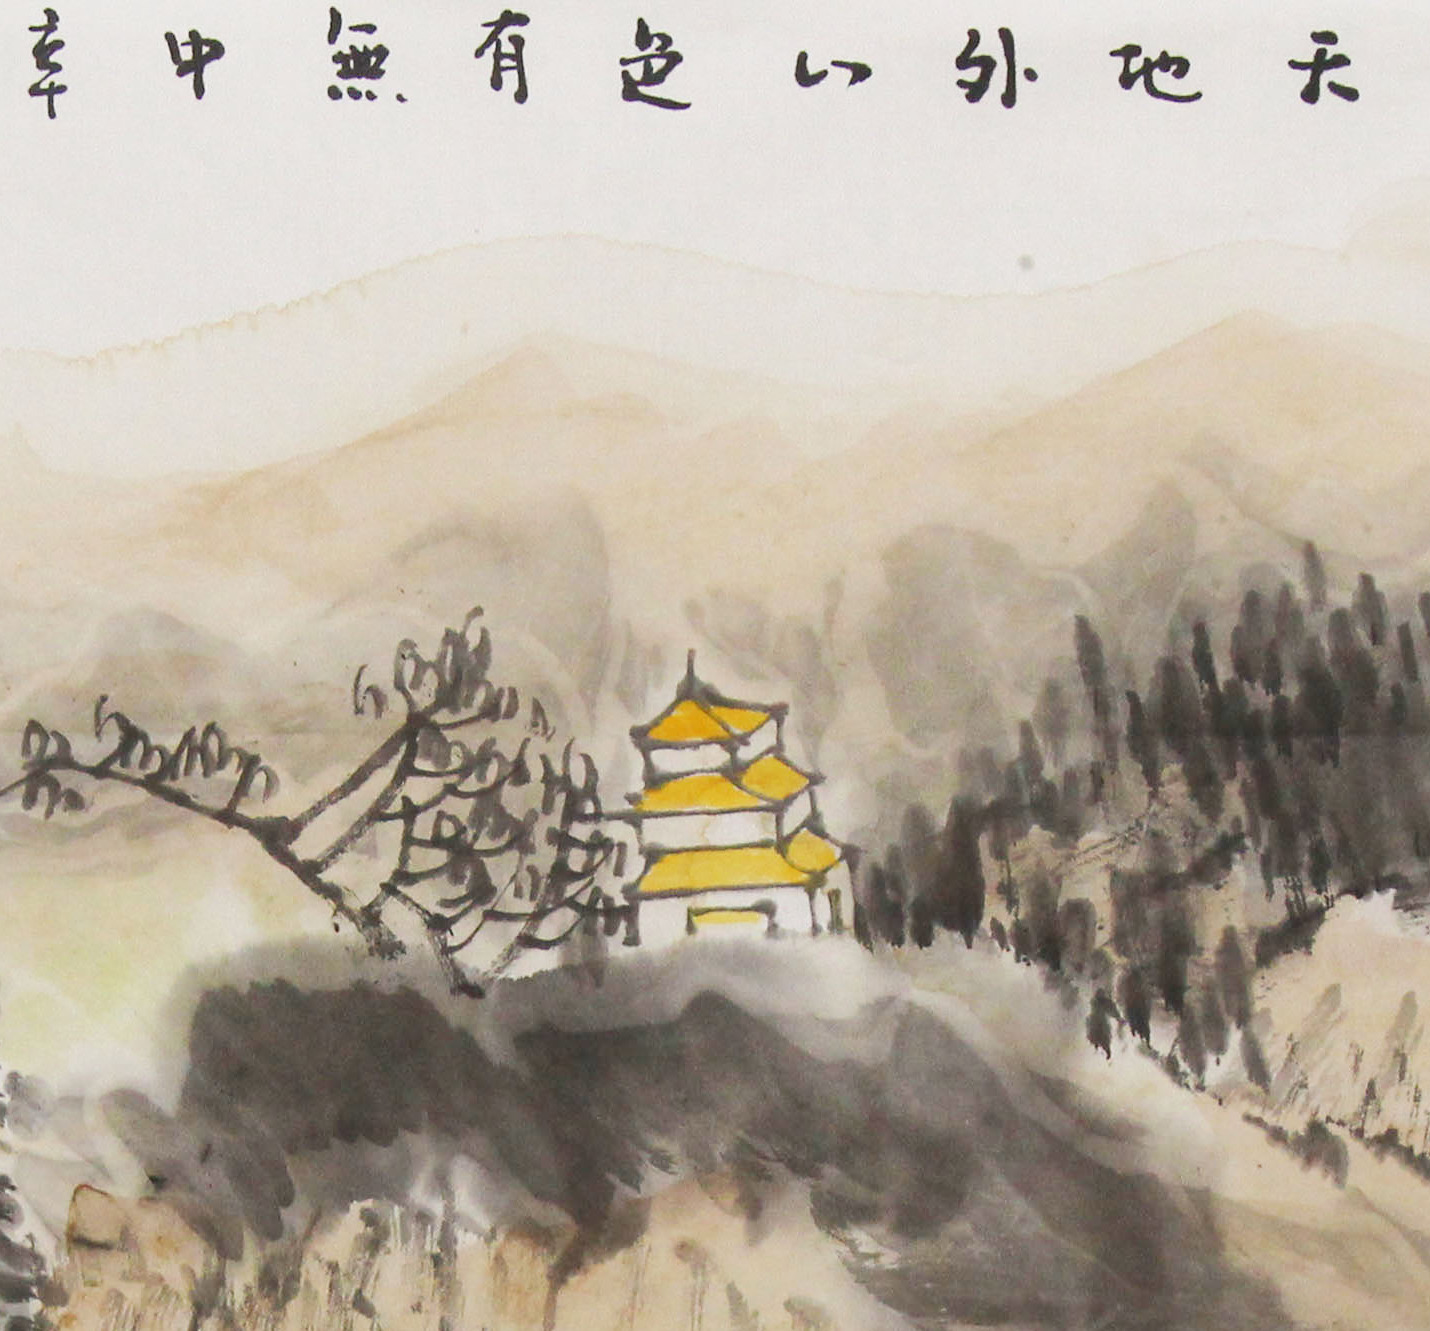 天地外山色有無中辛